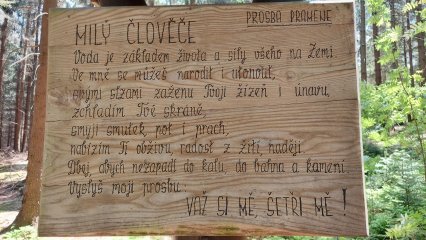 PROSBA PRAMENE
MILÝ ČLOVĚČE
Voda je základem života a síly všeho na Zemi
Ve mně se můžeš narodit i utonout,
svými slzami zaženu Tvoji žízeň i únavu,
zchladím Tvé skráně,
smyji smutek, pot i prach,
nabízím Ti obživu, radost z žití, naději.
Dbej, abych nezapadl do kalu, do bahna a kamení.
Vyslyš moji prosbu:
VAŽ SI MĚ, ŠETŘI MĚ!